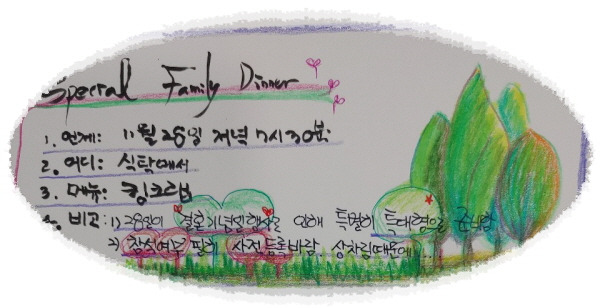 Special Family Dinner
1. 언제: 11월 28일 저녁 7시30분
2. 어디: 식탁에서
3. 메뉴: 킹크랩
4. 비고: 1) 28일이 결혼기념일행사로 인해 특별히 특대형으로 준비함
2) 참석여부 필히 사전등록바람. 상차림때문에...